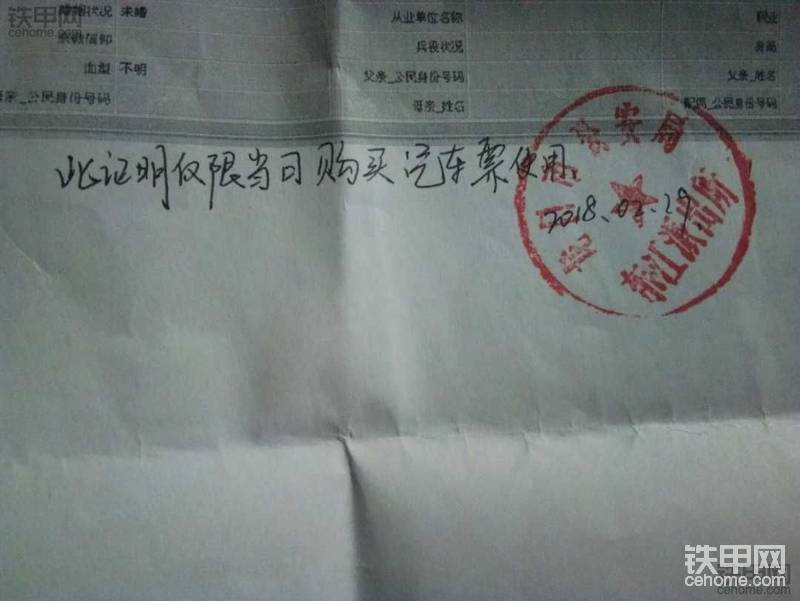 铁甲网
cehome.com
婚姻状况 未婚 从业单位名称 职业
宗教信仰 兵役状况 身高
血型 不明 父亲_公民身份号码 父亲_姓名
母亲_公民身份号码 母亲_姓名 配偶_公民身份号码
此证明仅限当日购买汽车票使用。
2018.02.29
公安局
东江派出所
铁甲网
cehome.com